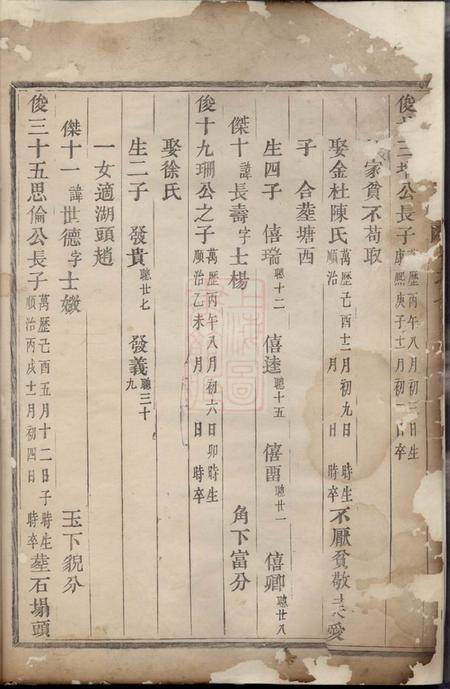 俊 三 公長子 萬歷丙午八月初三日 生 康熙庚子十一月初一日 卒
家貧不苟取
娶金杜陳氏 萬歷己酉十二月初九日 時生 順治 月 日 時卒 不厭貧敬 愛
子 合塟塘西
生四子 僖瑞聰十二 僖逵聰十五 僖畱聰廿一 僖卿聰廿八
傑十諱長壽字士楊 角下富分
俊十九珊公之子 萬歷丙午八月初六日卯時生 順治乙未 月 日 時卒
娶徐氏
生二子 發貴聰廿七 發義聰三十九
一女適湖頭趙
傑十一諱世德字士燬 玉下貌分
俊三十五思倫公長子 萬歷己酉五月十二日子時生 順治丙戌十二月初四日 時卒 塟石塌頭